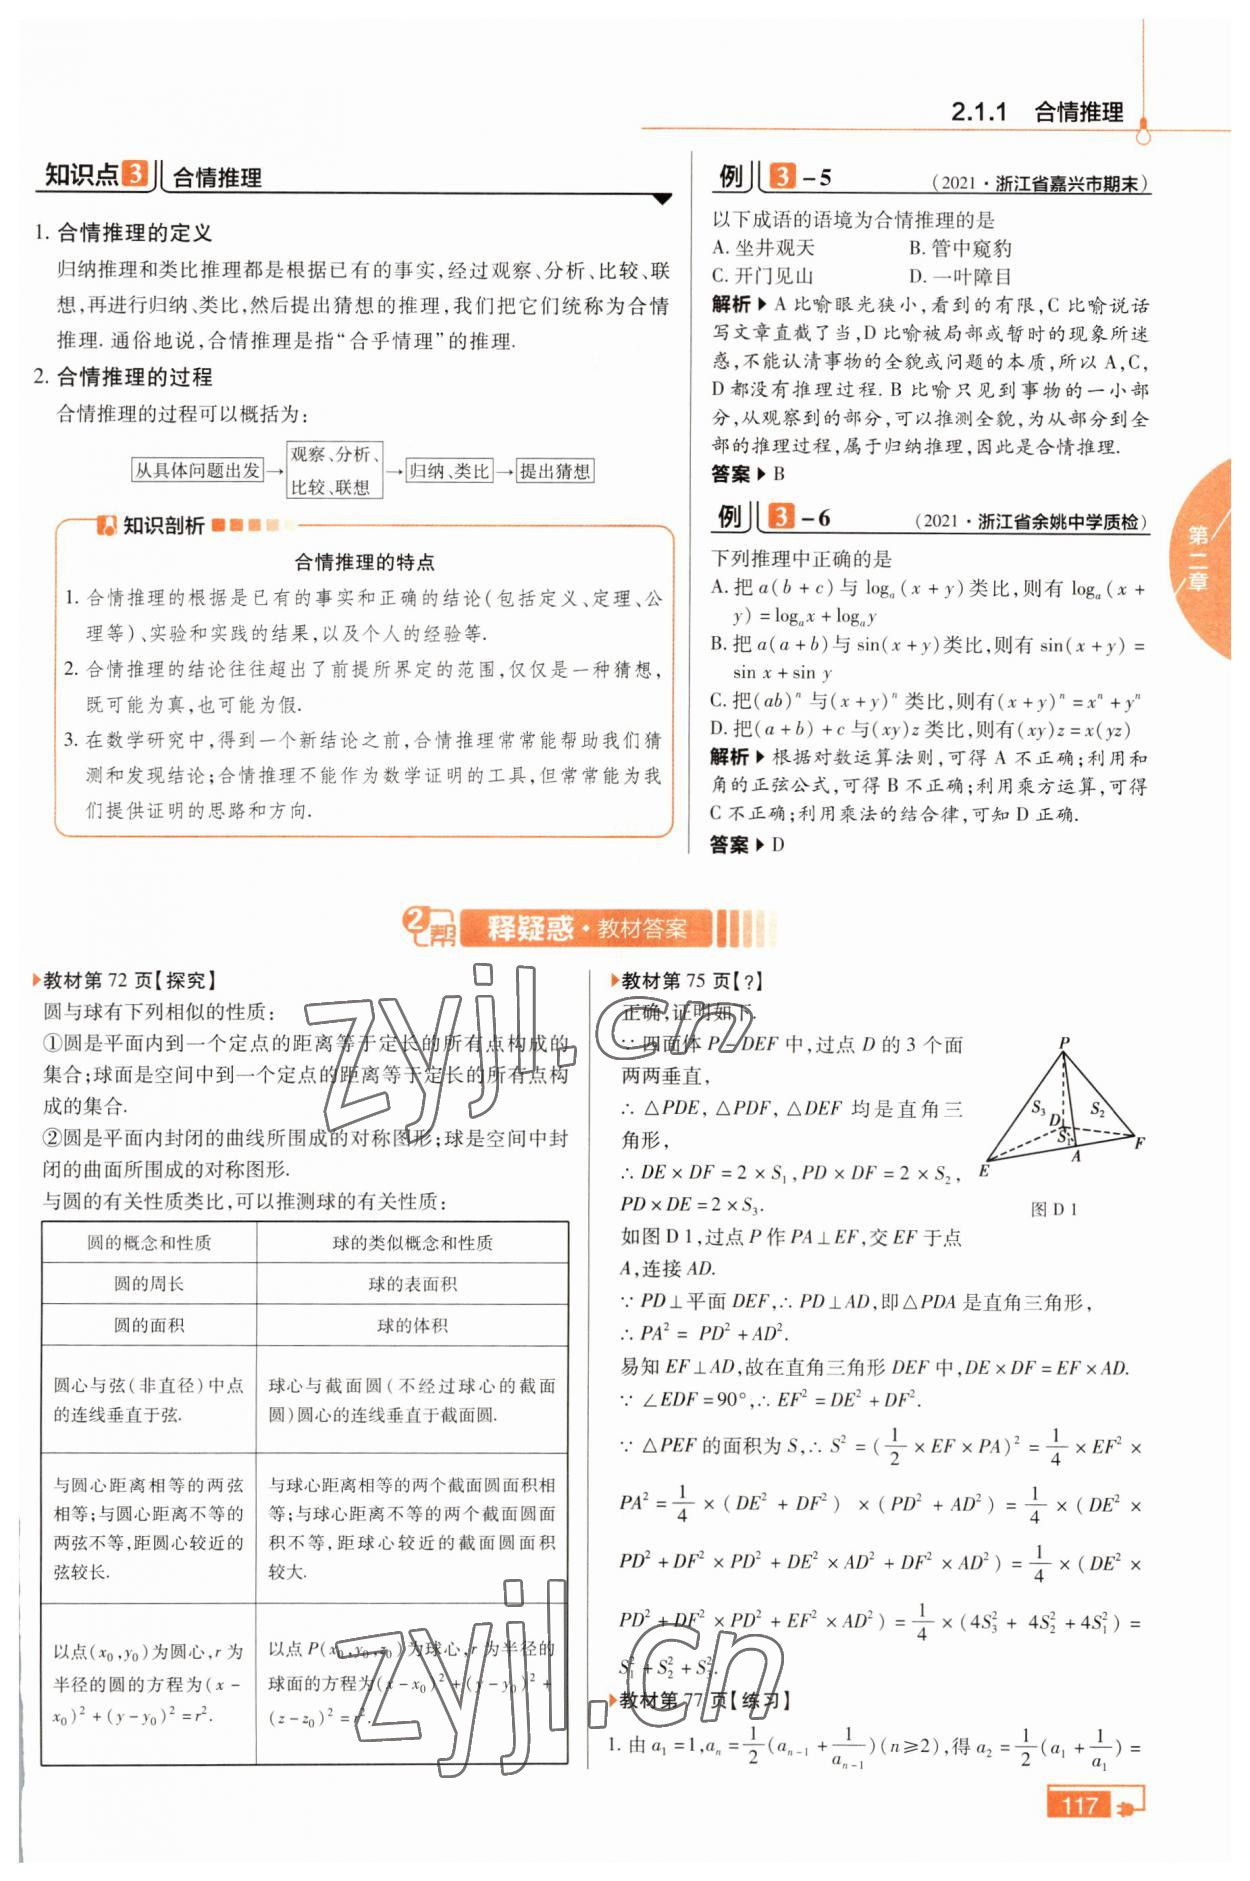 2.1.1 合情推理
知识点3 合情推理
1. 合情推理的定义
归纳推理和类比推理都是根据已有的事实,经过观察、分析、比较、联
想,再进行归纳、类比,然后提出猜想的推理,我们把它们统称为合情
推理. 通俗地说,合情推理是指“合乎情理”的推理.
2. 合情推理的过程
合情推理的过程可以概括为:
从具体问题出发→观察、分析、比较、联想→归纳、类比→提出猜想
知识剖析
合情推理的特点
1. 合情推理的根据是已有的事实和正确的结论(包括定义、定理、公
理等)、实验和实践的结果,以及个人的经验等.
2. 合情推理的结论往往超出了前提所界定的范围,仅仅是一种猜想,
既可能为真,也可能为假.
3. 在数学研究中,得到一个新结论之前,合情推理常常能帮助我们猜
测和发现结论;合情推理不能作为数学证明的工具,但常常能为我
们提供证明的思路和方向.
例3-5 (2021·浙江省嘉兴市期末)
以下成语的语境为合情推理的是
A. 坐井观天 B. 管中窥豹
C. 开门见山 D. 一叶障目
解析▶ A 比喻眼光狭小,看到的有限,C 比喻说话
写文章直截了当,D 比喻被局部或暂时的现象所迷
惑,不能认清事物的全貌或问题的本质,所以 A,C,
D 都没有推理过程. B 比喻只见到事物的一小部
分,从观察到的部分,可以推测全貌,为从部分到全
部的推理过程,属于归纳推理,因此是合情推理.
答案▶ B
例3-6 (2021·浙江省余姚中学质检)
下列推理中正确的是
A. 把 a(b+c)与 logₐ(x+y)类比,则有 logₐ(x+
y)=logₐx+logₐy
B. 把 a(a+b)与 sin(x+y)类比,则有 sin(x+y)=
sin x+sin y
C. 把(ab)ⁿ 与(x+y)ⁿ 类比,则有(x+y)ⁿ=xⁿ+yⁿ
D. 把(a+b)+c 与(xy)z 类比,则有(xy)z=x(yz)
解析▶ 根据对数运算法则,可得 A 不正确;利用和
角的正弦公式,可得 B 不正确;利用乘方运算,可得
C 不正确;利用乘法的结合律,可知 D 正确.
答案▶ D
第二章
2帮 释疑惑·教材答案
▶教材第 72 页【探究】
圆与球有下列相似的性质:
①圆是平面内到一个定点的距离等于定长的所有点构成的
集合;球面是空间中到一个定点的距离等于定长的所有点构
成的集合.
②圆是平面内封闭的曲线所围成的对称图形;球是空间中封
闭的曲面所围成的对称图形.
与圆的有关性质类比,可以推测球的有关性质:
圆的概念和性质 球的类似概念和性质
圆的周长 球的表面积
圆的面积 球的体积
圆心与弦(非直径)中点
的连线垂直于弦.
球心与截面圆(不经过球心的截面
圆)圆心的连线垂直于截面圆.
与圆心距离相等的两弦
相等;与圆心距离不等的
两弦不等,距圆心较近的
弦较长.
与球心距离相等的两个截面圆面积相
等;与球心距离不等的两个截面圆面
积不等,距球心较近的截面圆面积
较大.
以点(x₀,y₀)为圆心,r 为
半径的圆的方程为(x-
x₀)²+(y-y₀)²=r².
以点 P(x₀,y₀,z₀)为球心,r 为半径的
球面的方程为(x-x₀)²+(y-y₀)²+
(z-z₀)²=r².
▶教材第 75 页【?】
正确,证明如下.
∵ 四面体 P-DEF 中,过点 D 的 3 个面
两两垂直,
∴ △PDE, △PDF, △DEF 均是直角三
角形,
∴ DE×DF=2×S₁,PD×DF=2×S₂,
PD×DE=2×S₃.
如图 D 1,过点 P 作 PA⊥EF,交 EF 于点
A,连接 AD.
P
S₃
S₂
D
S₁
E
A
F
图 D 1
∵ PD⊥平面 DEF,∴ PD⊥AD,即△PDA 是直角三角形,
∴ PA²=PD²+AD².
易知 EF⊥AD,故在直角三角形 DEF 中,DE×DF=EF×AD.
∵ ∠EDF=90°,∴ EF²=DE²+DF².
∵ △PEF 的面积为 S,∴ S²=(1/2×EF×PA)²=1/4×EF²×
PA²=1/4×(DE²+DF²)×(PD²+AD²)=1/4×(DE²×
PD²+DF²×PD²+DE²×AD²+DF²×AD²)=1/4×(DE²×
PD²+DF²×PD²+EF²×AD²)=1/4×(4S₃²+4S₂²+4S₁²)=
S₁²+S₂²+S₃².
▶教材第 77 页【练习】
1. 由 a₁=1,aₙ=1/2(aₙ₋₁+1/aₙ₋₁)(n≥2),得 a₂=1/2(a₁+1/a₁)=
117
zyjl.cn
zyjl.cn